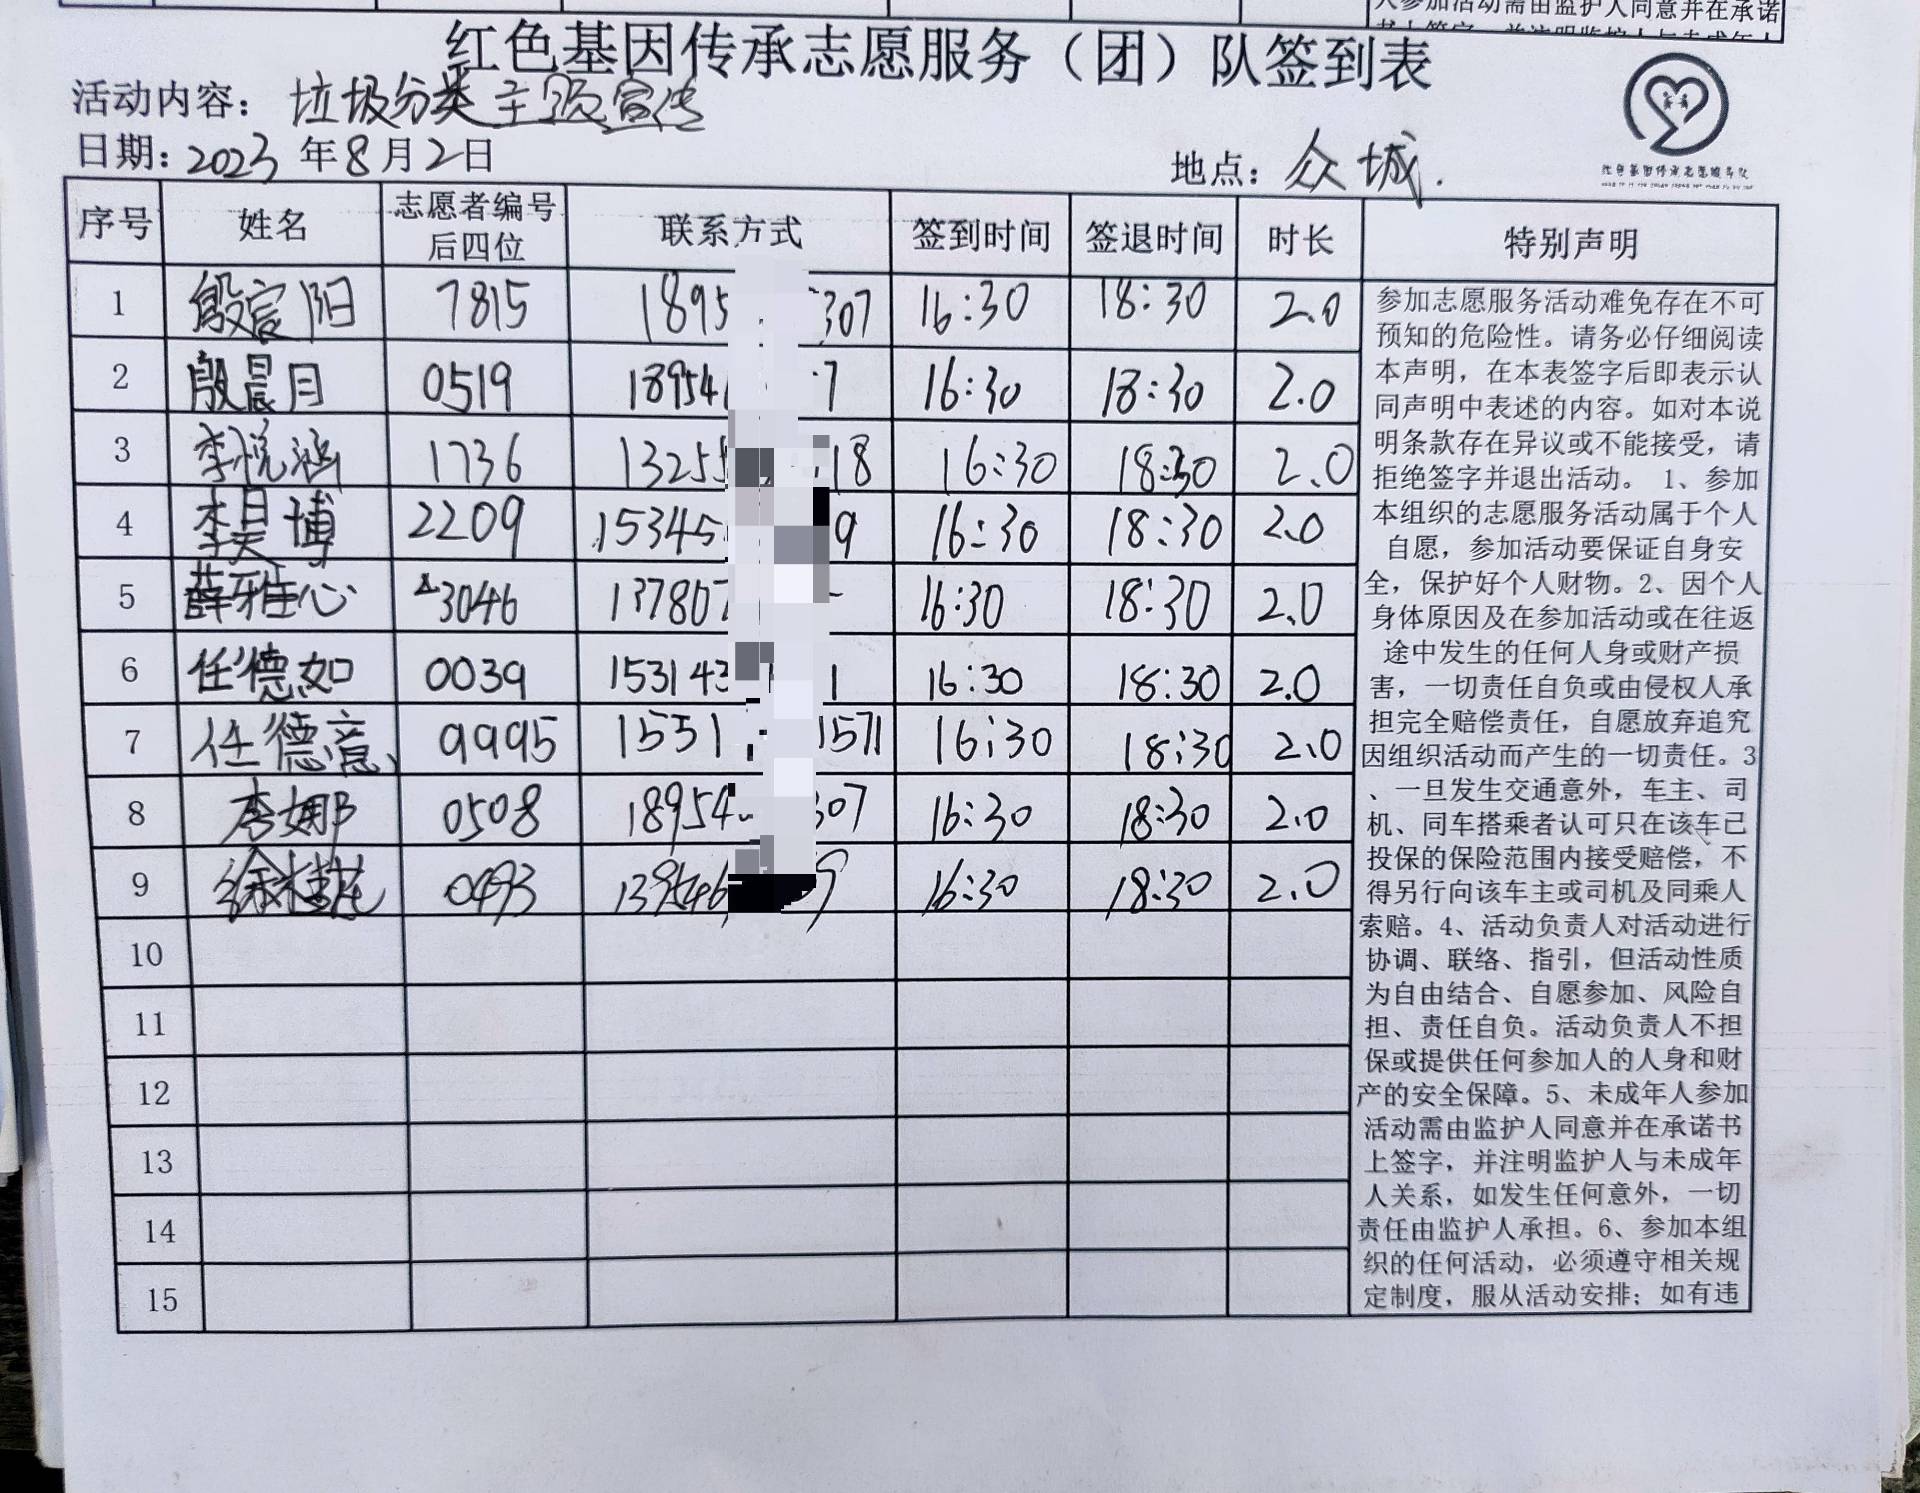 人参加活动需由监护人同意并在承诺
红色基因传承志愿服务（团）队签到表
活动内容：垃圾分类主题宣传
日期：2023年8月2日
地点：众城.
红色基因传承志愿服务队
序号 姓名 志愿者编号后四位 联系方式 签到时间 签退时间 时长 特别声明
1 殷宸阳 7815 1895 307 16:30 18:30 2.0
2 殷晨月 0519 18954 7 16:30 18:30 2.0
3 李悦涵 1736 13255 18 16:30 18:30 2.0
4 李昊博 2209 15345 9 16:30 18:30 2.0
5 薛雅心 3046 13780 16:30 18:30 2.0
6 任德如 0039 153143 1 16:30 18:30 2.0
7 任德意 9995 1551 1571 16:30 18:30 2.0
8 李娜 0508 18954 307 16:30 18:30 2.0
9 徐桂花 0493 139546 9 16:30 18:30 2.0
10
11
12
13
14
15
参加志愿服务活动难免存在不可
预知的危险性。请务必仔细阅读
本声明，在本表签字后即表示认
同声明中表述的内容。如对本说
明条款存在异议或不能接受，请
拒绝签字并退出活动。 1、参加
本组织的志愿服务活动属于个人
自愿，参加活动要保证自身安
全，保护好个人财物。2、因个人
身体原因及在参加活动或在往返
途中发生的任何人身或财产损
害，一切责任自负或由侵权人承
担完全赔偿责任，自愿放弃追究
因组织活动而产生的一切责任。3
、一旦发生交通意外，车主、司
机、同车搭乘者认可只在该车已
投保的保险范围内接受赔偿，不
得另行向该车主或司机及同乘人
索赔。4、活动负责人对活动进行
协调、联络、指引，但活动性质
为自由结合、自愿参加、风险自
担、责任自负。活动负责人不担
保或提供任何参加人的人身和财
产的安全保障。5、未成年人参加
活动需由监护人同意并在承诺书
上签字，并注明监护人与未成年
人关系，如发生任何意外，一切
责任由监护人承担。6、参加本组
织的任何活动，必须遵守相关规
定制度，服从活动安排；如有违